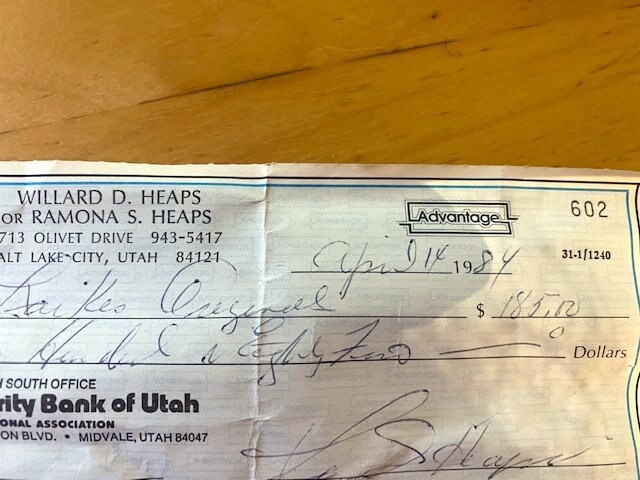 WILLARD D. HEAPS
OR RAMONA S. HEAPS
713 OLIVET DRIVE 943-5417
ALT LAKE CITY, UTAH 84121
Advantage
602
April 14 1984
31-1/1240
Original $ 185.00
Hundred & Eighty Five Dollars
H SOUTH OFFICE
rity Bank of Utah
ONAL ASSOCIATION
ON BLVD. • MIDVALE, UTAH 84047
S Heaps